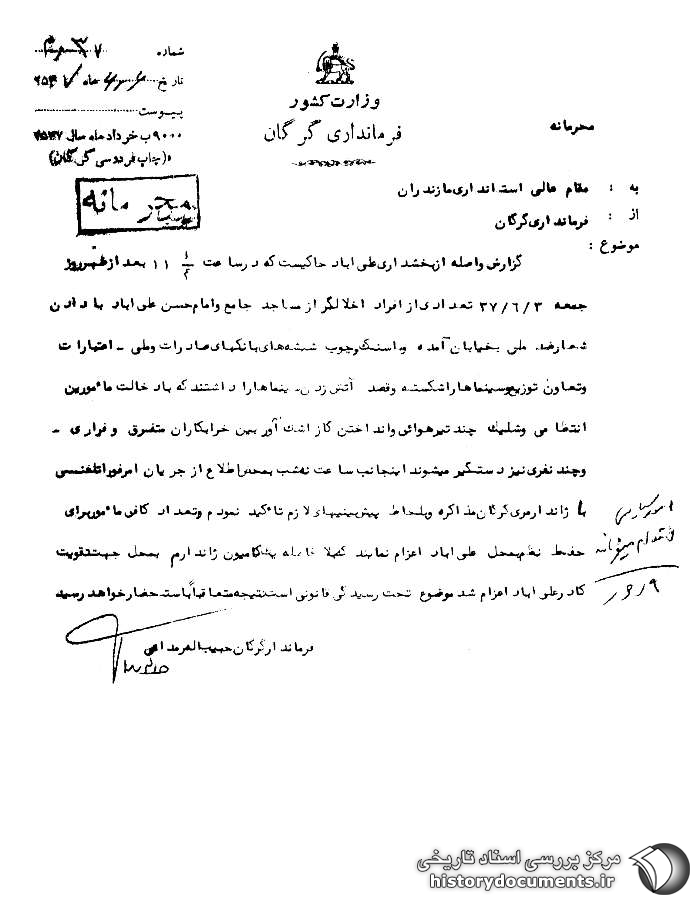 شماره
تاریخ ماه ۲۵۳۷
پیوست
۹۰۰۰ب خرداد ماه سال ۲۵۳۷
(چاپ فردوسی گرگان)
وزارت کشور
فرمانداری گرگان
محرمانه
محرمانه
به : مقام عالی استانداری مازندران
از : فرمانداری گرگان
موضوع :
گزارش واصله از بخشداری علی اباد حاکیست که در ساعت ۱۱ ۱/۲ بعد از ظهر روز
جمعه ۳۷/۶/۳ تعدادی از افراد اخلالگر از مساجد جامع و امام حسن علی اباد با دادن
شعار ضد ملی بخیابان آمده و با سنگ و چوب شیشه های بانکهای صادرات و ملی - اعتبارات
و تعاون توزیع و سینماها را شکسته و قصد آتش زدن سینماها را داشتند که با دخالت مامورین
انتظامی و شلیک چند تیر هوائی و انداختن گاز اشک آور بین خرابکاران متفرق و فراری -
و چند نفری نیز دستگیر میشوند اینجانب ساعت نه شب بمحض اطلاع از جریان امر فورا تلفنی
با ژاندارمری گرگان مذاکره و بلحاظ پیش بینیهای لازم تاکید نمودم و تعداد کافی مامور برای
حفظ نظم بمحل علی اباد اعزام نمایند که بلا فاصله یک کامیون ژاندارم بمحل جهت تقویت
کادر علی اباد اعزام شد موضوع تحت رسیدگی قانونی است نتیجه متعاقباً باستحضار خواهد رسید
فرماندار گرگان حبیب اله
اقدام میشود
مرکز بررسی اسناد تاریخی
historydocuments.ir